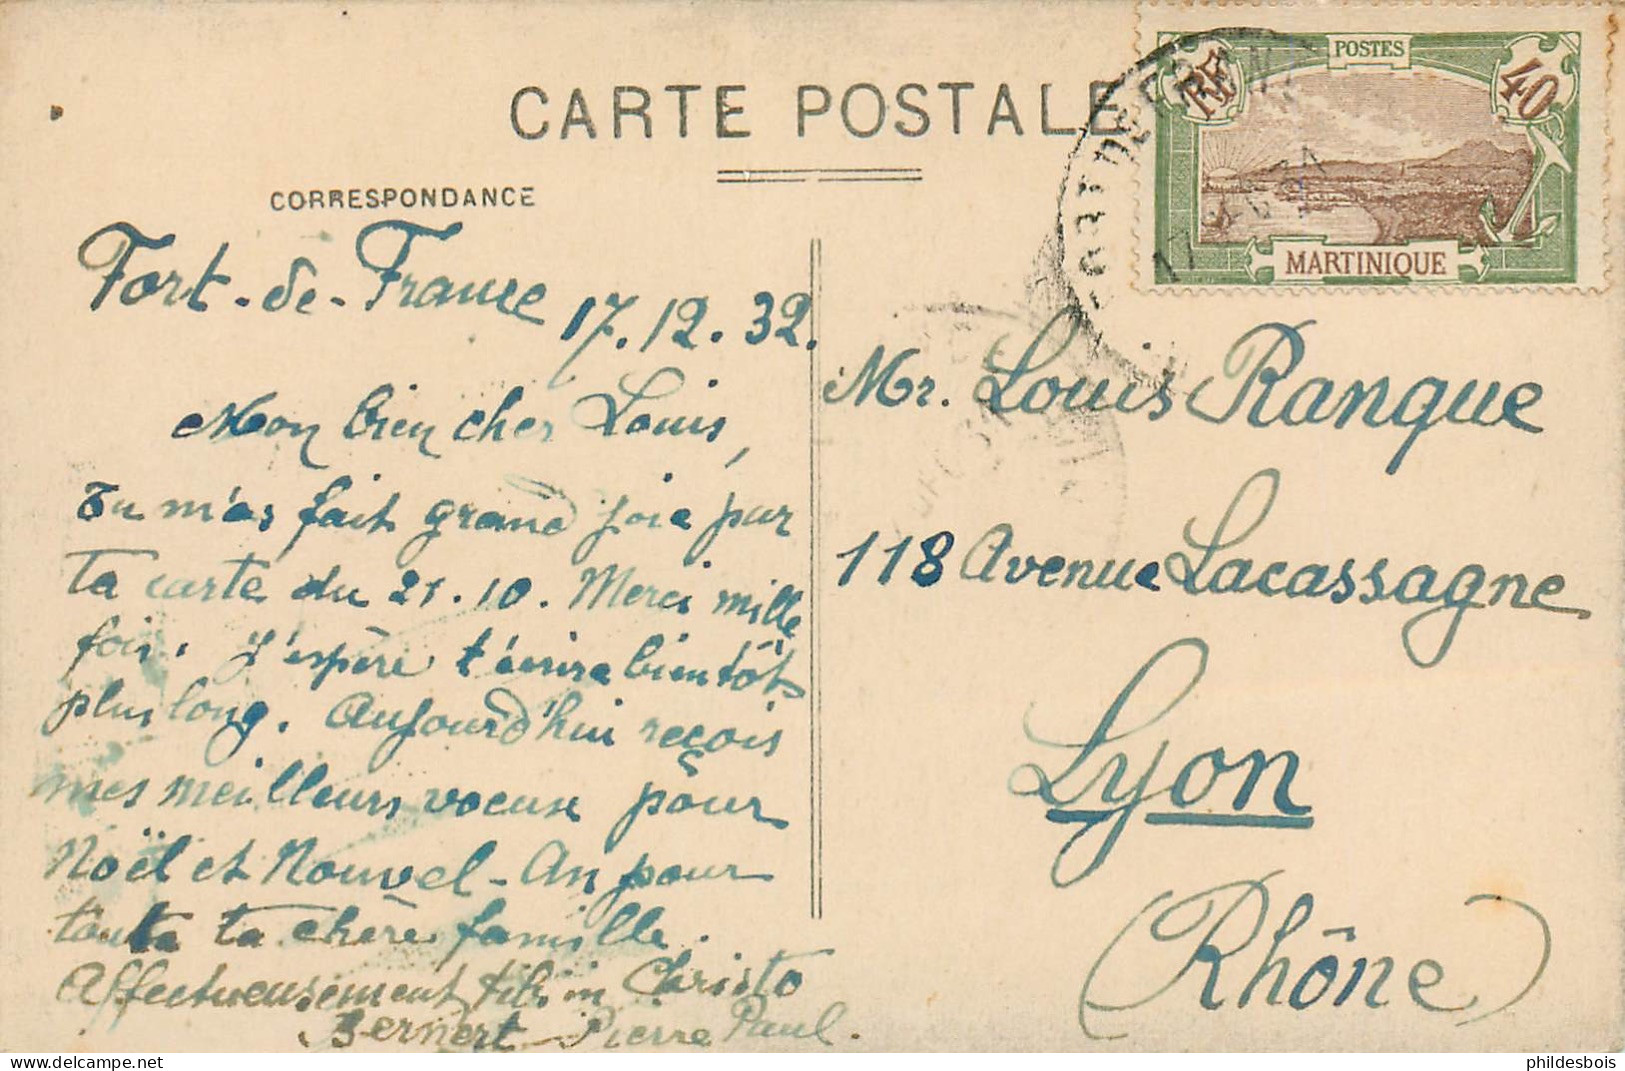 CARTE POSTALE
CORRESPONDANCE
Fort-de-France 17.12.32.
Mon bien cher Louis,
Tu m'as fait grand joie par
ta carte du 21.10. Merci mille
fois. J'espère t'écrire bientôt
plus long. Aujourd'hui reçois
mes meilleurs voeux pour
Noël et Nouvel-An pour
toute ta chère famille.
Affectueusement tibi in Christo
Bernert Pierre Paul.
POSTES
RF
40
MARTINIQUE
FORT DE FRANCE
17
Mr. Louis Ranque
118 Avenue Lacassagne
Lyon
(Rhône)
phildesbois